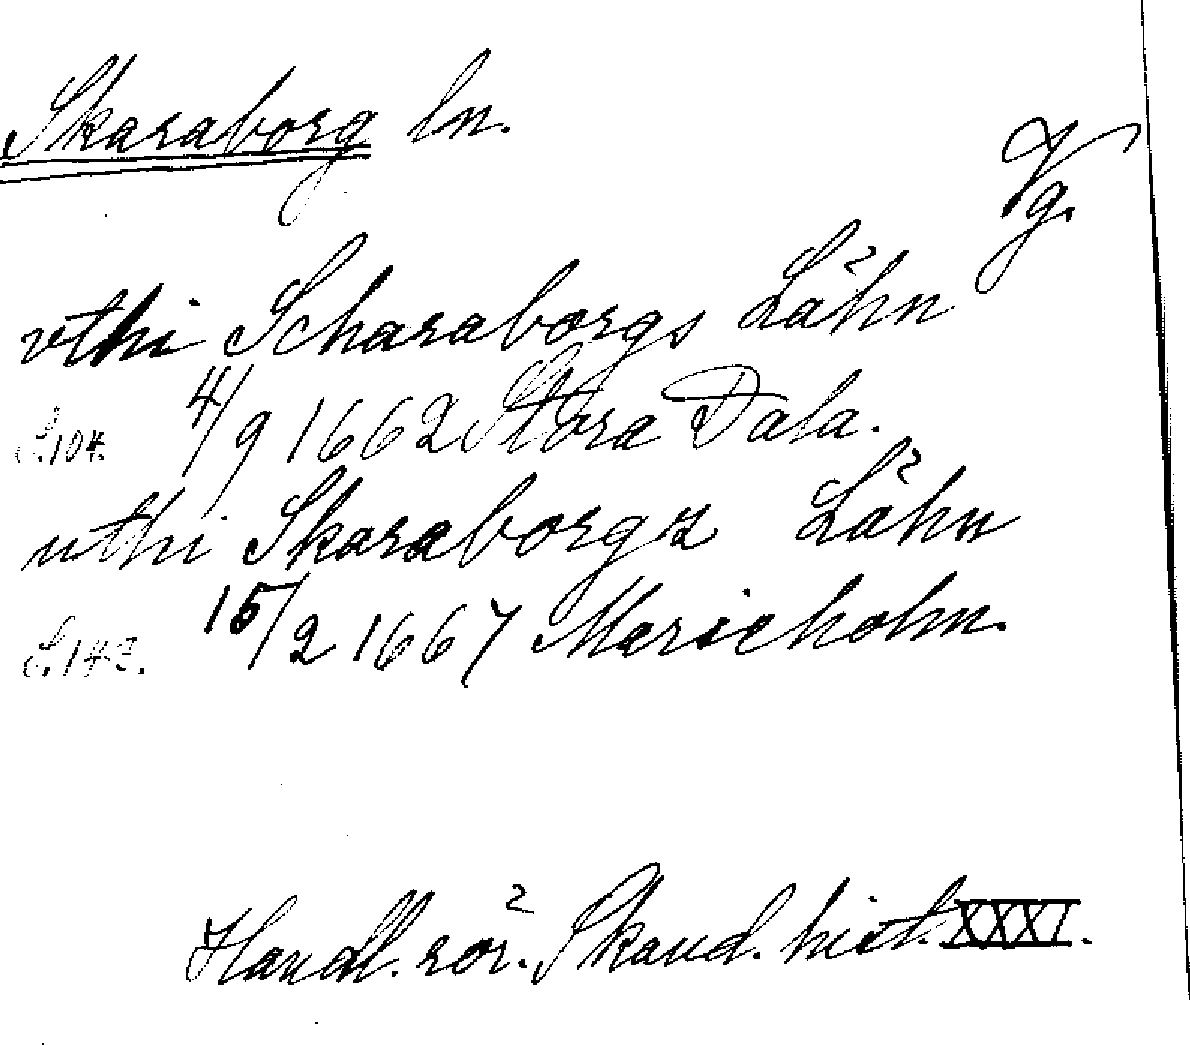 Skaraborg ln.
Vg.
vthi Scharaborgs Lähn
S. 104. 4/9 1662 Stora Dala.
uthi Skaraborgz Lähn
S. 142. 15/2 1667 Marieholm.
Handl. rör. Skand. hist. XXXI.